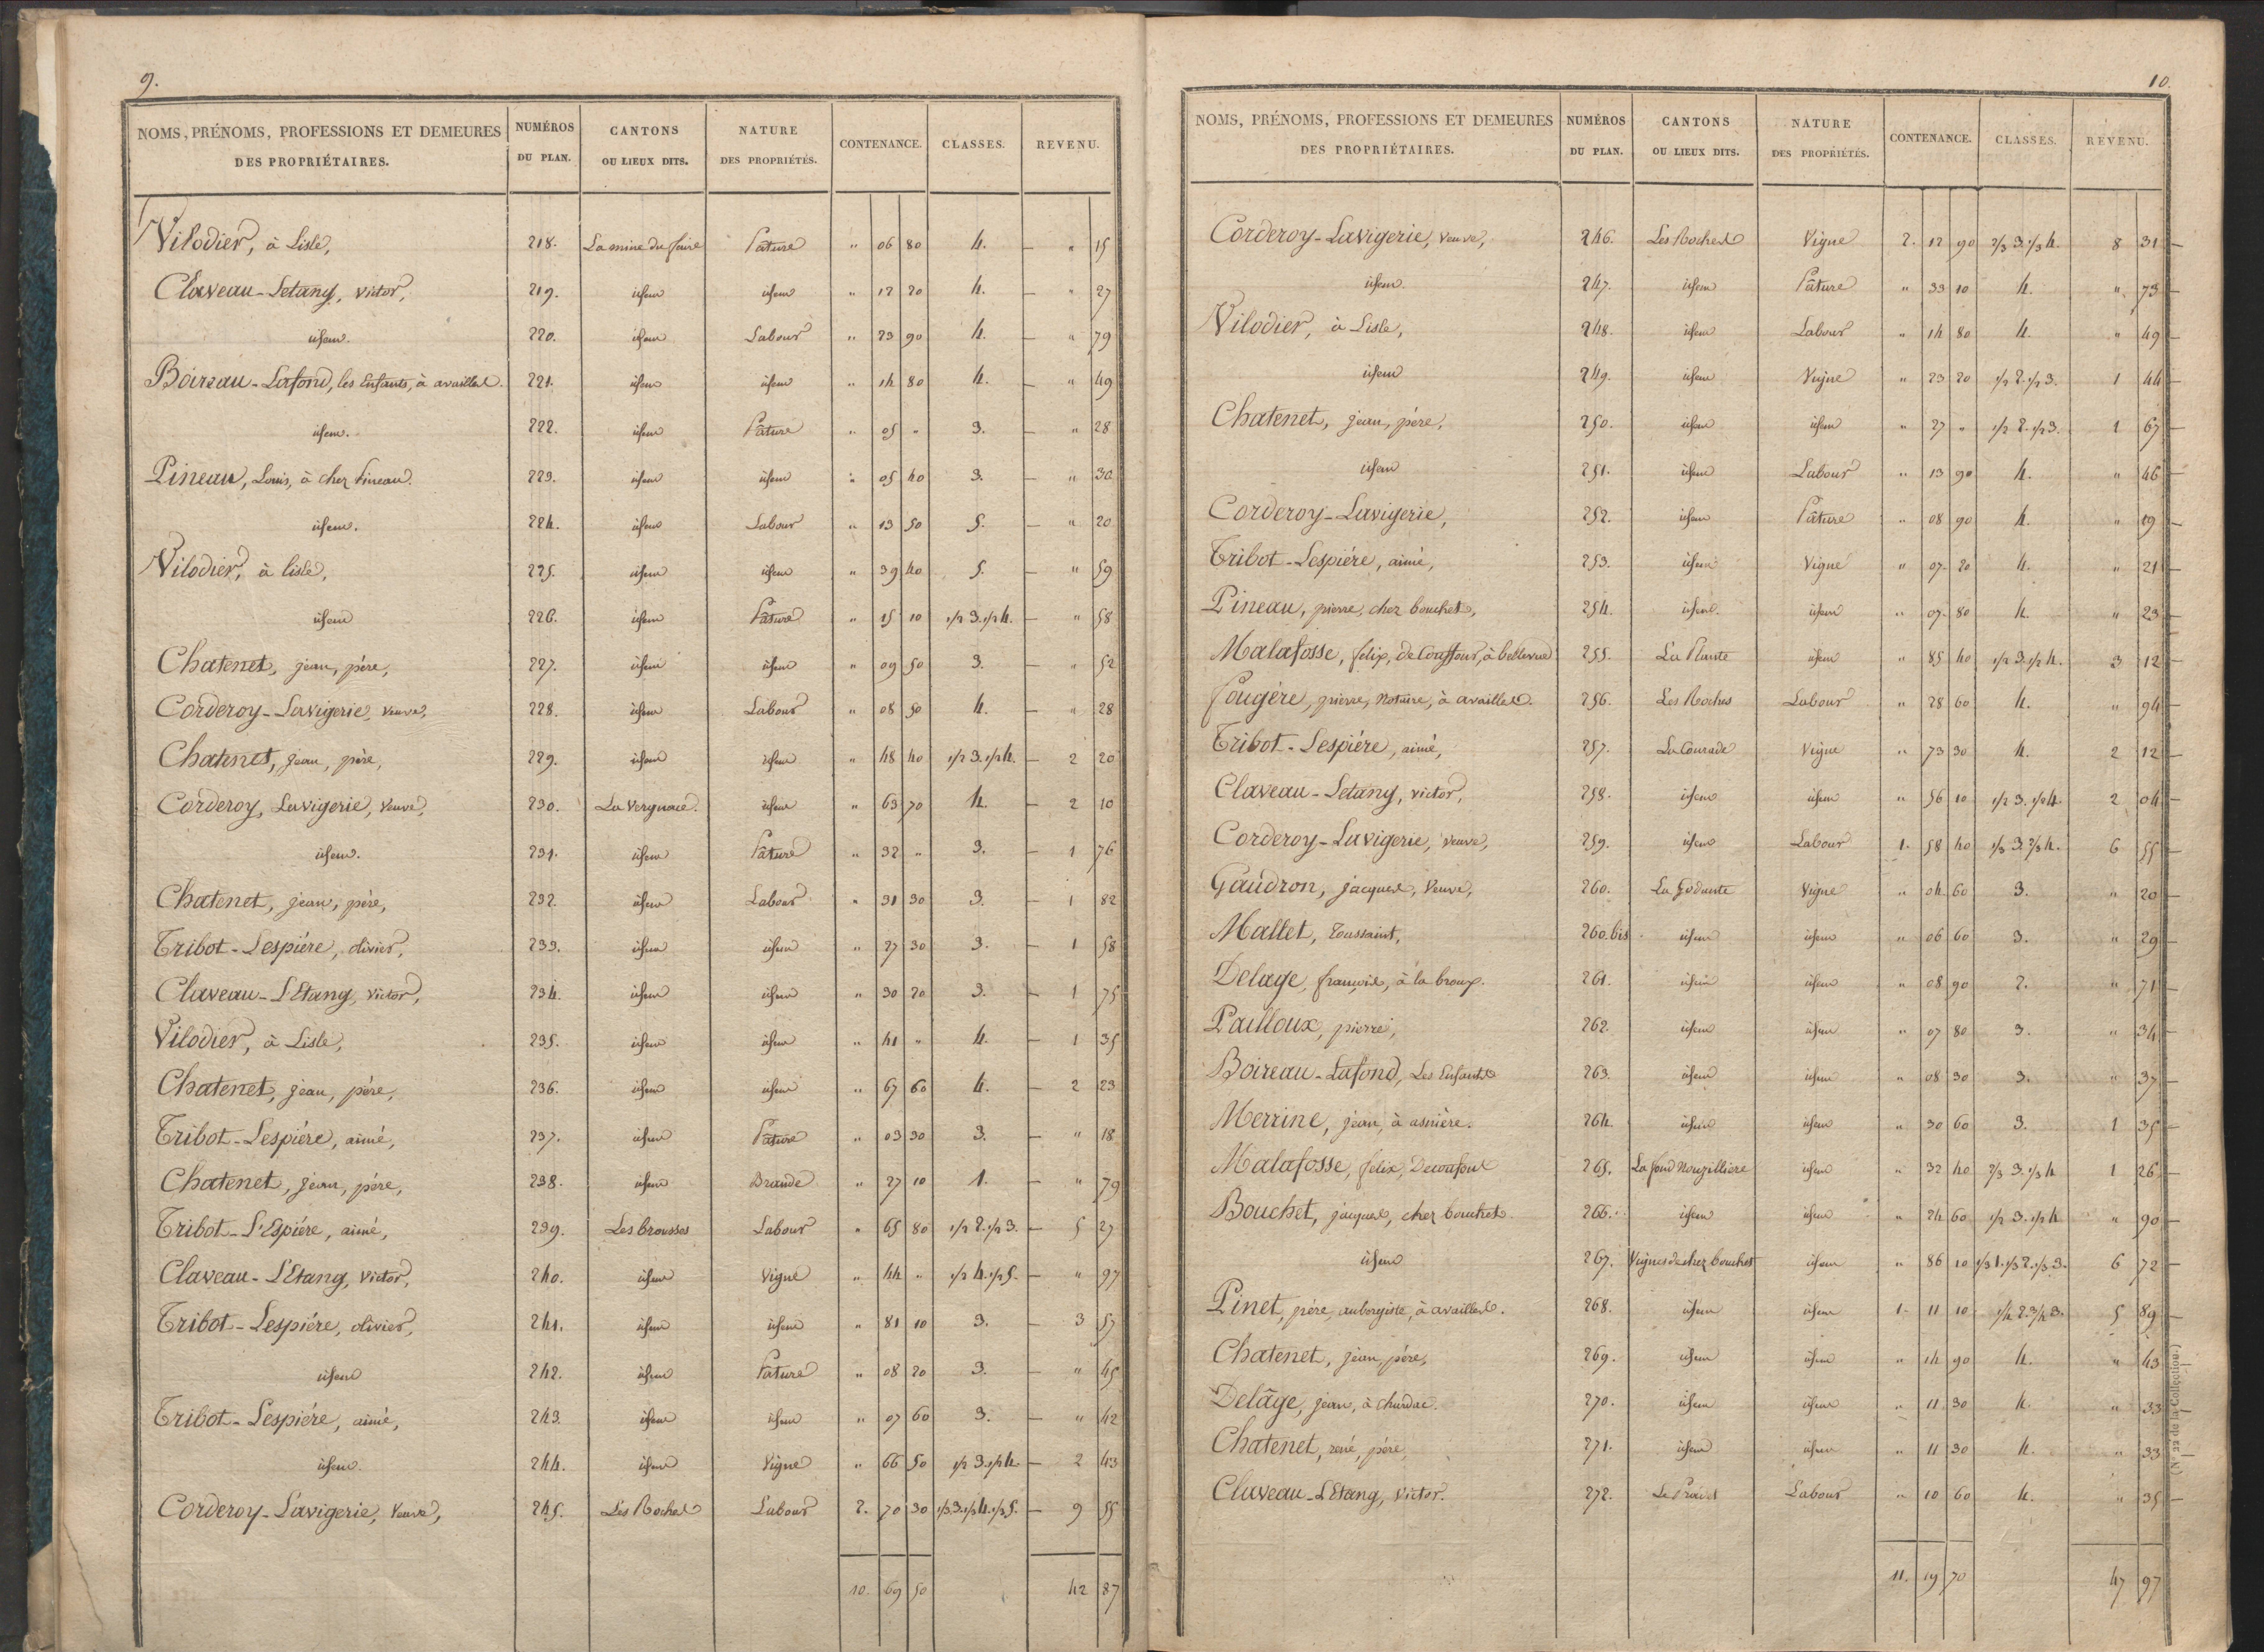 9.
NOMS, PRÉNOMS, PROFESSIONS ET DEMEURES DES PROPRIÉTAIRES. NUMÉROS DU PLAN. CANTONS OU LIEUX DITS. NATURE DES PROPRIÉTÉS. CONTENANCE. CLASSES. REVENU.
Vilodier, à Lisle, 218. La mine du faire Pâture " 06 80 4. — " 15
Claveau-Letang, victor, 219. idem idem " 12 20 4. — " 27
idem. 220. idem Labour " 23 90 4. — " 79
Boireau-Lafond, les Enfants, à availles. 221. idem idem " 14 80 4. — " 49
idem. 222. idem Pâture " 05 " 3. " 28
Pineau, Louis, à chez Pineau. 223. idem idem " 05 40 3. — " 30
idem. 224. idem Labour " 13 50 5. — " 20
Vilodier, à lisle, 225. idem idem " 39 40 5. — " 59
idem 226. idem Pâture " 15 10 1/2 3. 1/2 4. — " 58
Chatenet, jean, père, 227. idem idem " 09 50 3. — " 52
Corderoy-Lavigerie, veuve, 228. idem Labour " 08 50 4. — " 28
Chatenet, jean, père, 229. idem idem " 48 40 1/2 3. 1/2 4. — 2 20
Corderoy, Lavigerie, veuve, 230. La Vergnace. idem " 63 70 4. — 2 10
idem. 231. idem Pâture " 32 " 3. — 1 76
Chatenet, jean, père, 232. idem Labour " 31 30 3. — 1 82
Tribot-Lespiére, olivier, 233. idem idem " 27 30 3. — 1 58
Claveau-L'Etang, victor, 234. idem idem " 30 20 3. — 1 75
Vilodier, à Lisle, 235. idem idem " 41 " 4. — 1 35
Chatenet, jean, père, 236. idem idem " 67 60 4. — 2 23
Tribot-Lespiére, aimé, 237. idem Pâture " 03 30 3. — " 18
Chatenet, jean, père, 238. idem Brande " 27 10 1. — " 79
Tribot-L'Espiére, aimé, 239. Les brousses Labour " 65 80 1/2 2. 1/2 3. — 5 27
Claveau-L'Etang, victor, 240. idem Vigne " 44 " 1/2 4. 1/2 5. — " 97
Tribot-Lespiére, olivier, 241. idem idem " 81 10 3. — 3 57
idem 242. idem Pâture " 08 20 3. — " 45
Tribot-Lespiére, aimé, 243. idem idem " 07 60 3. — " 42
idem. 244. idem Vigne " 66 50 1/2 3. 1/2 4. — 2 43
Corderoy-Lavigerie, veuve, 245. Les Roches Labour 2. 70 30 1/3 3. 1/3 4. 1/3 5. — 9 55
10. 69 50 42 87
10.
NOMS, PRÉNOMS, PROFESSIONS ET DEMEURES DES PROPRIÉTAIRES. NUMÉROS DU PLAN. CANTONS OU LIEUX DITS. NATURE DES PROPRIÉTÉS. CONTENANCE. CLASSES. REVENU.
Corderoy-Lavigerie, veuve, 246. Les Roches Vigne 2. 12 90 2/3 3. 1/3 4. 8 31 —
idem. 247. idem Pâture " 33 10 4. " 73 —
Vilodier, à Lisle, 248. idem Labour " 14 80 4. " 49 —
idem 249. idem Vigne " 23 20 1/2 2. 1/2 3. 1 44 —
Chatenet, jean, père, 250. idem idem " 27 " 1/2 2. 1/2 3. 1 67 —
idem 251. idem Labour " 13 90 4. " 46 —
Corderoy-Lavigerie, 252. idem Pâture " 08 90 4. " 19 —
Tribot-Lespiére, aimé, 253. idem Vigne " 07 20 4. " 21 —
Pineau, pierre, chez bouchet, 254. idem idem " 07 80 4. " 23 —
Malafosse, felix, à bellevue 255. La Plante idem " 85 40 1/2 3. 1/2 4. 3 12 —
Fougère, pierre, Notaire, à availles. 256. Les Roches Labour " 28 60 4. " 94 —
Tribot-Lespiére, aimé, 257. La Courade Vigne " 73 30 4. 2 12 —
Claveau-Letang, victor, 258. idem idem " 56 10 1/2 3. 1/2 4. 2 04 —
Corderoy-Lavigerie, veuve, 259. idem Labour 1. 58 40 1/3 3. 2/3 4. 6 55 —
Gaudron, jacques, Veuve, 260. La Vigne " 04 60 3. " 20 —
Mallet, Toussaint, 260. bis idem idem " 06 60 3. " 29 —
Delage, françois, à la broux. 261. idem idem " 08 90 2. " 71 —
Pailloux, pierre, 262. idem idem " 07 80 3. " 34 —
Boireau-Lafond, Les Enfants 263. idem idem " 08 30 3. " 37 —
Merrine, jean, à asnière. 264. idem idem " 30 60 3. 1 35 —
Malafosse, felix, 265. La fond Nouzilliere idem " 32 40 2/3 3. 1/3 4 1 26 —
Bouchet, jacques, chez bouchet 266. idem idem " 24 60 1/2 3. 1/2 4 " 90 —
idem 267. Vignes de chez bouchet idem " 86 10 1/3 1. 1/3 2. 1/3 3. 6 72 —
Pinet, père, aubergiste, à availles. 268. idem idem 1. 11 10 1/4 2. 3/4 3. 5 89 —
Chatenet, jean, père, 269. idem idem " 14 90 4. " 43 —
Delâge, jean, à chardac. 270. idem idem " 11 30 4. " 33 —
Chatenet, rené, père, 271. idem idem " 11 30 4. " 33 —
Claveau-L'Etang, victor. 272. Labour " 10 60 4. " 35 —
11. 19 70 47 97
(N° 22 de la Collection.)